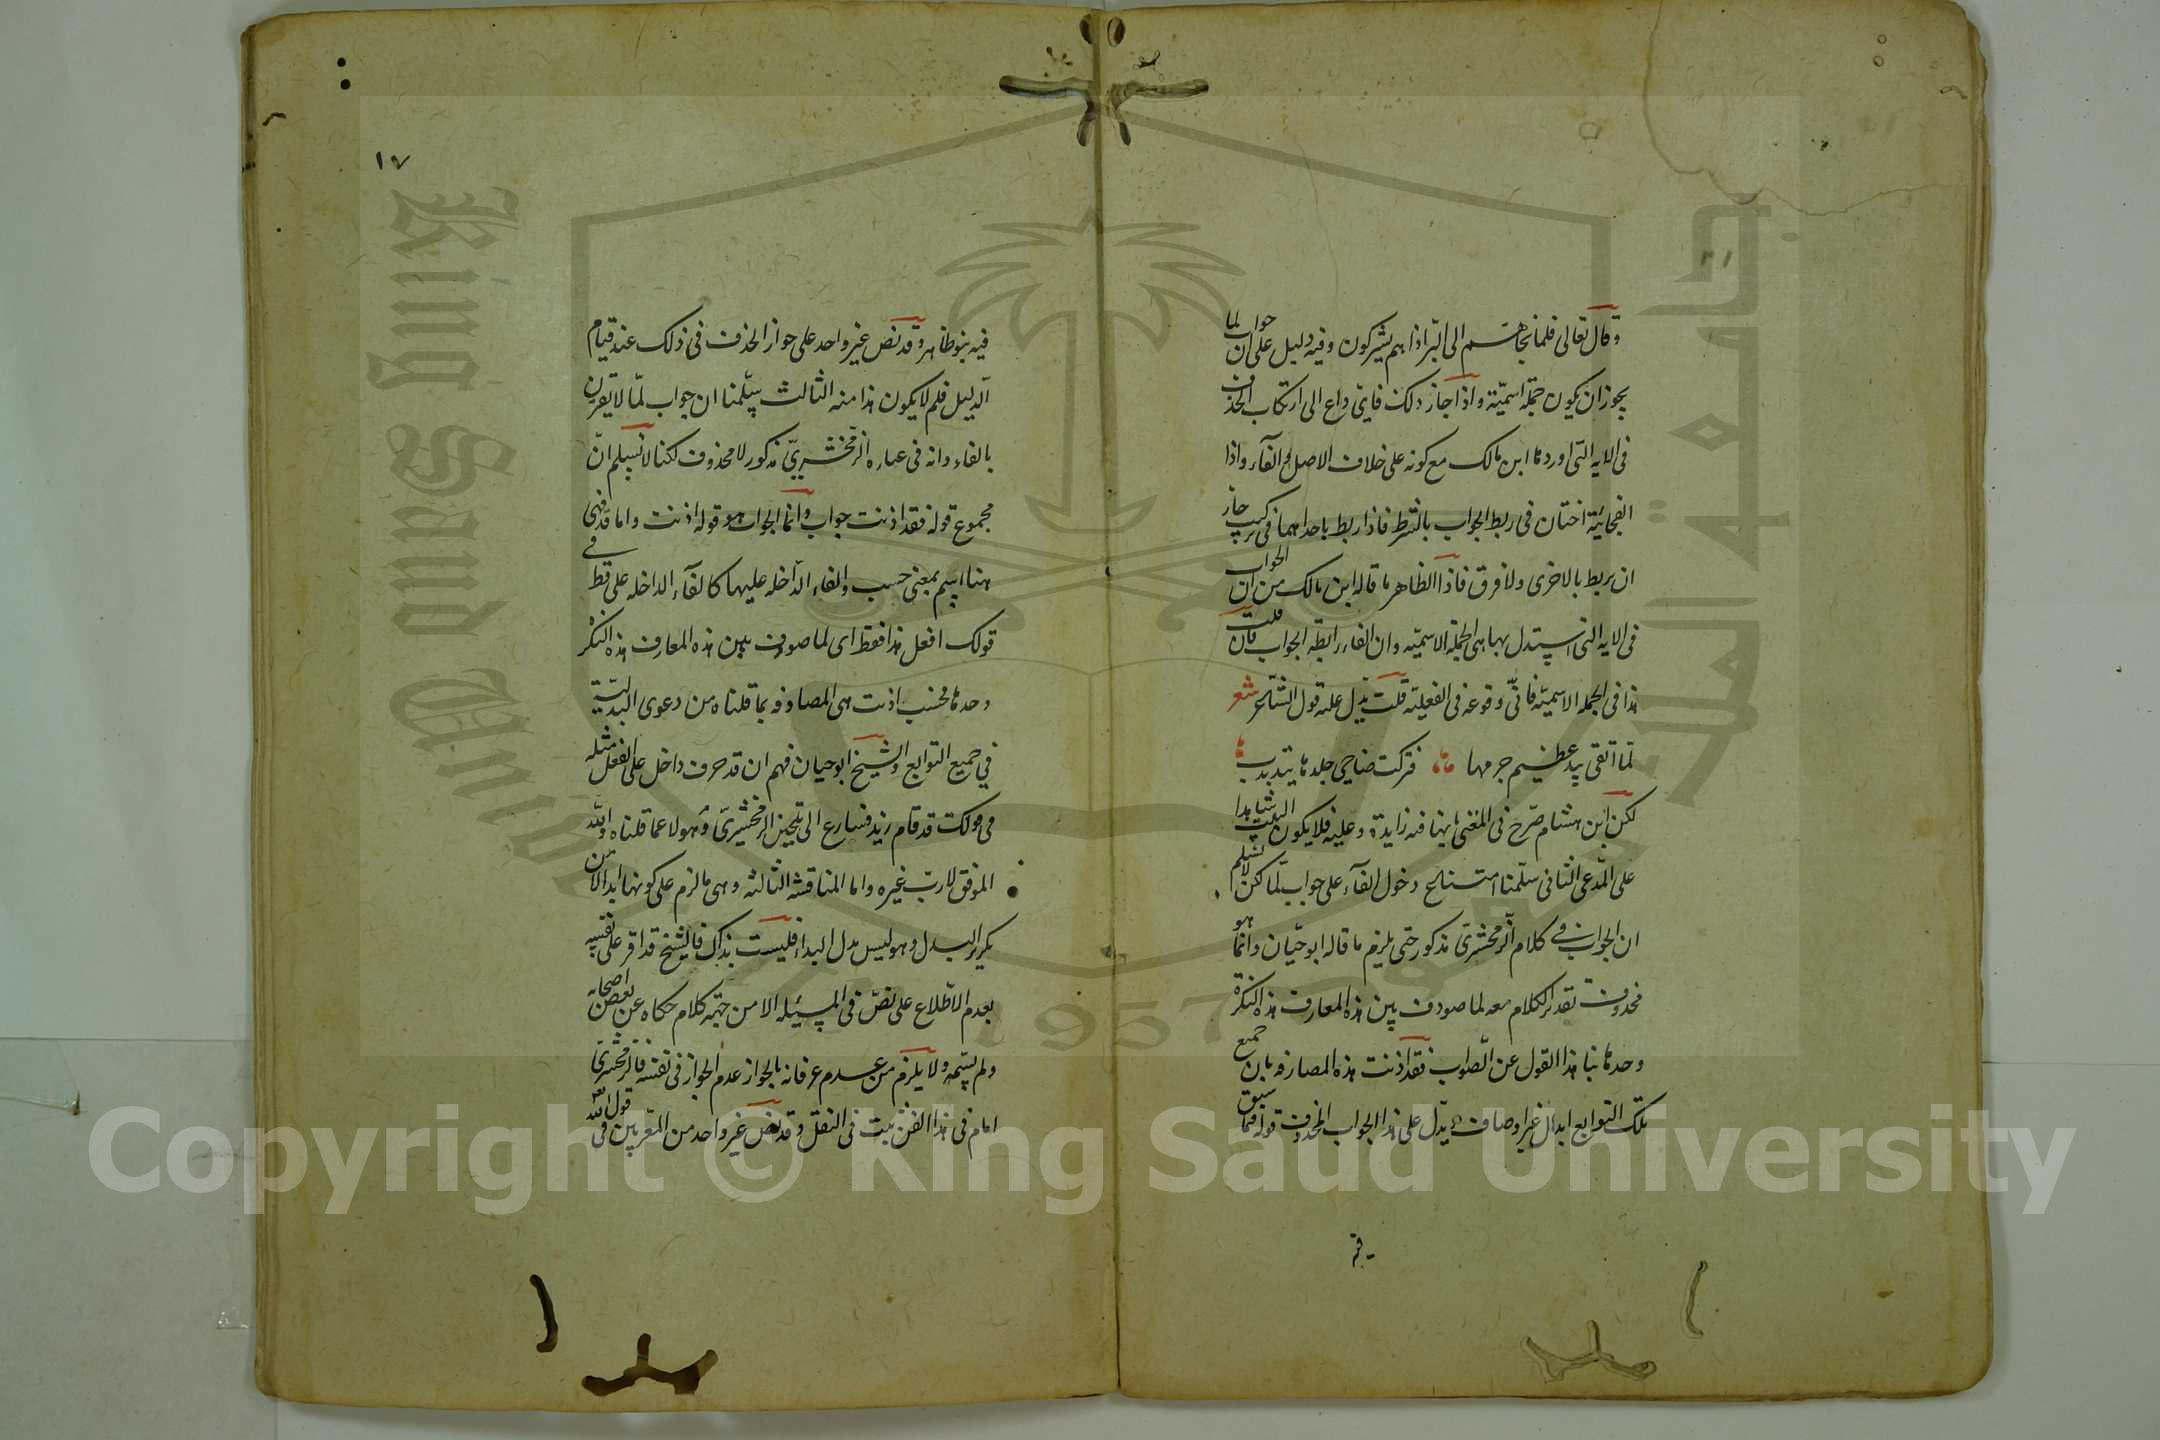 وقال تعالى فلما نجاهم الى البر اذا هم يشركون وفيه دليل على ان جواب لما
يجوز ان يكون جملة اسمية واذا جاز ذلك فاى داع الى ارتكاب الحذف
فى الاية التى اوردها ابن مالك مع كونه على خلاف الاصل الفآء واذا
الفجائية اختان فى ربط الجواب بالشرط فاذا ربط باحداهما فى تركيب جاز
ان يربط بالاخرى ولا فرق فاذا الظاهر ما قاله ابن مالك من ان الجواب
فى الاية التى استدل بها هى الجملة الاسمية وان الفاء رابطة الجواب فان قلت
هذا فى الجملة الاسمية فانى وقوعه فى الفعلية قلت يدل عليه قول الشاعر شعر
لما اتقى بيد عظيم جرمها فتركت ضاحى جلدها يتذبذب
لكن ابن هشام صرح فى المغنى بانها فيه زايدة وعليه فلا يكون البيت شاهدا
على المدعى الثانى سلمنا امتناع دخول الفآء على جواب لما لكن لا نسلم
ان الجواب فى كلام الزمخشرى مذكور حتى يلزم ما قاله ابو حيان وانما هو
محذوف تقدير الكلام معه لما صودف بين هذه المعارف هذه النكرة
وحدها نبا هذا القول عن الصواب فقد اذنت هذه المصادفه بان جميع
تلك التوابع ابدال غير اوصاف يدل على هذا الجواب المحذوف قوله فيما سبق
فيه
١٧
فيه بنو ظاهر وقد نص غير واحد على جواز الحذف فى ذلك عند قيام
الدليل فلم لا يكون هذا منه الثالث سلمنا ان جواب لما لا يقرن
بالفاء وانه فى عباره الزمخشرى مذكور لا محذوف لكنا لا نسلم ان
مجموع قوله فقد اذنت جواب وانما الجواب هو قوله اذنت واما قد فهى
هنا اسم بمعنى حسب والفاء الداخله عليها كالفآء الداخله على قط فى
قولك افعل هذا فقط اى لما صودف بين هذه المعارف هذه النكره
وحدها فحسب اذنت هى المصادفه بما قلناه من دعوى البدلية
فى جميع التوابع والشيخ ابو حيان فهم ان قد حرف داخل على الفعل مثله
فى قولك قد قام زيد فسارع الى تلحين الزمخشرى وهو لا عما قلناه والله
الموفق لا رب غيره واما المناقشه الثالثه وهى ما لزم على كونها ابدالا من
تكرير البدل وهو ليس بدل البداء فليست بذاك فالشيخ قد اقر على نفسه
بعدم الاطلاع على نص فى المسئله الا من جهة كلام حكاه عن بعض اصحابه
ولم يسمه ولا يلزم من عدم عرفانه بالجواز عدم الجواز فى نفسه فالزمخشرى
امام فى هذا الفن ثبت فى النقل وقد نص غير واحد من المعربين فى قول الله